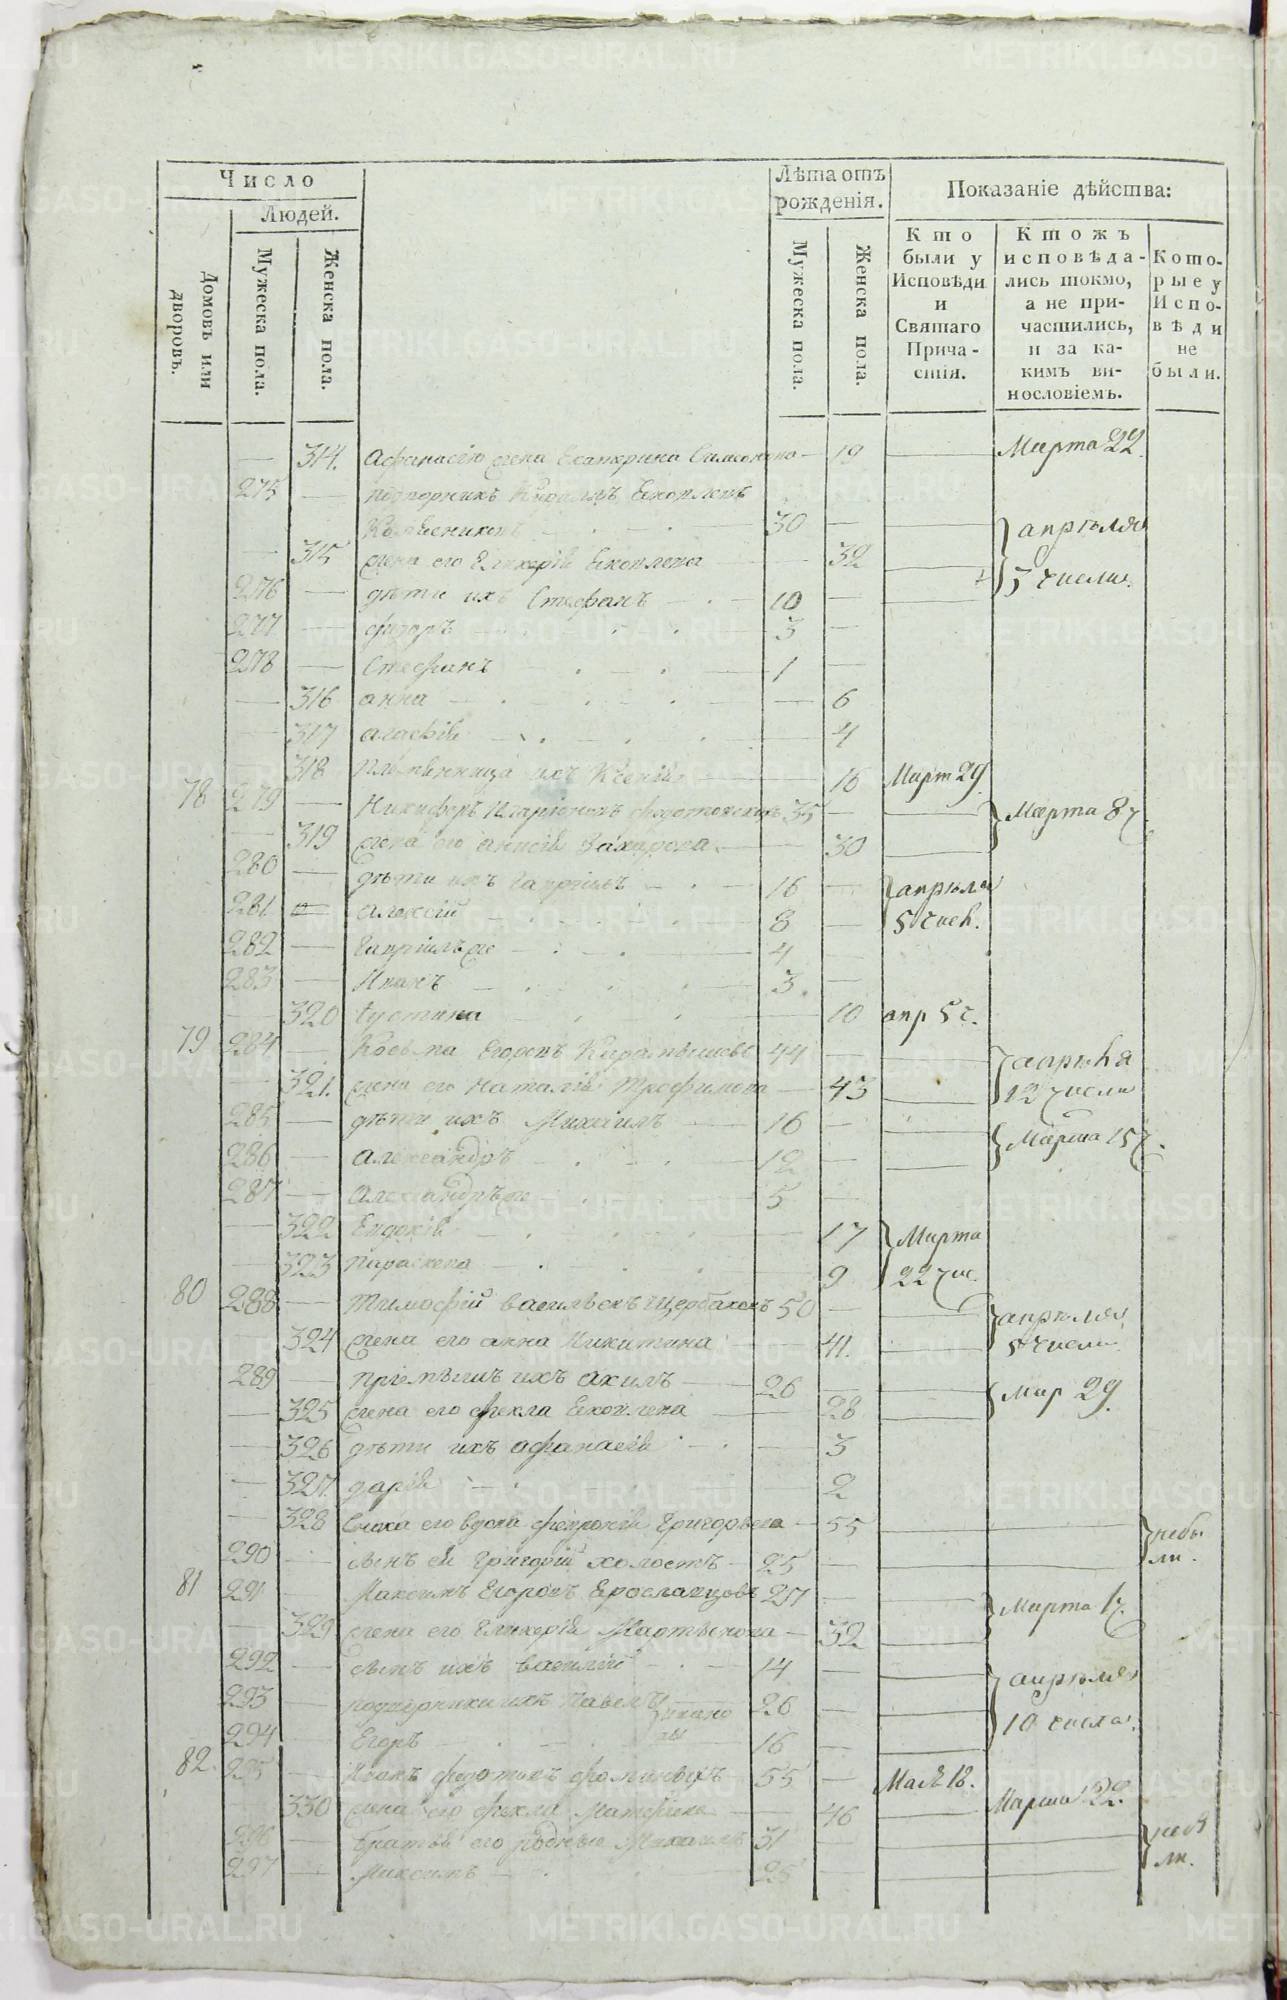 Число
Людей.
Домовъ или дворовъ.
Мужеска пола.
Женска пола.
Лѣта отъ рожденія.
Мужеска пола.
Женска пола.
Показаніе дѣйства:
Кто были у Исповѣди и Святаго Причастія.
Ктожъ исповѣдались токмо, а не причастились, и за какимъ винословіемъ.
Которые у Исповѣди не были.
— 314. Афанасію жена Екатерина Симеонова — 19 — Марта 22.
275 — подпорникъ Кирилъ
30 — апрѣля
— 315 жена его Гликерія — 32 — 5 числа.
276 — дѣти ихъ Стефанъ — 10 —
277 — Фѣдоръ — 3 —
278 — Стефанъ — 1 —
— 316 анна — 6
— 317 агафія — 4
— 318 Племянница ихъ Ксенія — 16 Март 29.
78 279 — Никифоръ Иларіоновъ 35 — Марта 8 ч.
— 319 жена его анисія Захарова — 30 —
280 — дѣти ихъ Гавріилъ — 16 — апрѣля
281 — алексій — 8 — 5 числ.
282 — Гавріилъ же — 4 —
283 — Иванъ — 3 —
— 320 Іустина — 10 апр 5 ч.
79 284 — Козьма Егоровъ 44 — апрѣля
— 321. жена его Наталія Трофимова — 43 — 12 числа
285 — дѣти ихъ Михаилъ — 16 — Марта 15 ч.
286 — александръ — 12 —
287 — александръ же — 5 —
— 322 Евдокія — 17 Марта
— 323 Параскева — 9 22 чис.
80 288 — Тимофей васильевъ Щербаковъ 50 — апрѣля
— 324 жена его анна Никитина — 41. — 5 числа
289 — пріемышъ ихъ акимъ — 26 — Мар 29.
— 325 жена его фекла — 28 —
— 326 дѣти ихъ афанасія — 3
— 327 дарія — 2
— 328 вдова Григорьева — 55 — небы
290 — сынъ ей Григорій холостъ — 25 — ли.
81 291 — Максимъ Егоровъ Ерославцовъ 27 — Марта 1 ч.
— 329 жена его Гликерія Мартынова — 32 —
292 — сынъ ихъ василій — 14 — апрѣля
293 — подворники ихъ Павелъ Ивановы 26 — 10 числа.
294 — Егоръ — 16 —
82. 295 — Иванъ федотовъ 55 — Маія 18.
— 330 жена его фекла Матфѣева — 46 — Марта 22.
296 — братья его родные Михаилъ 31 — небы
297 — Максимъ — 25 — ли.
METRIKI.GASO-URAL.RU